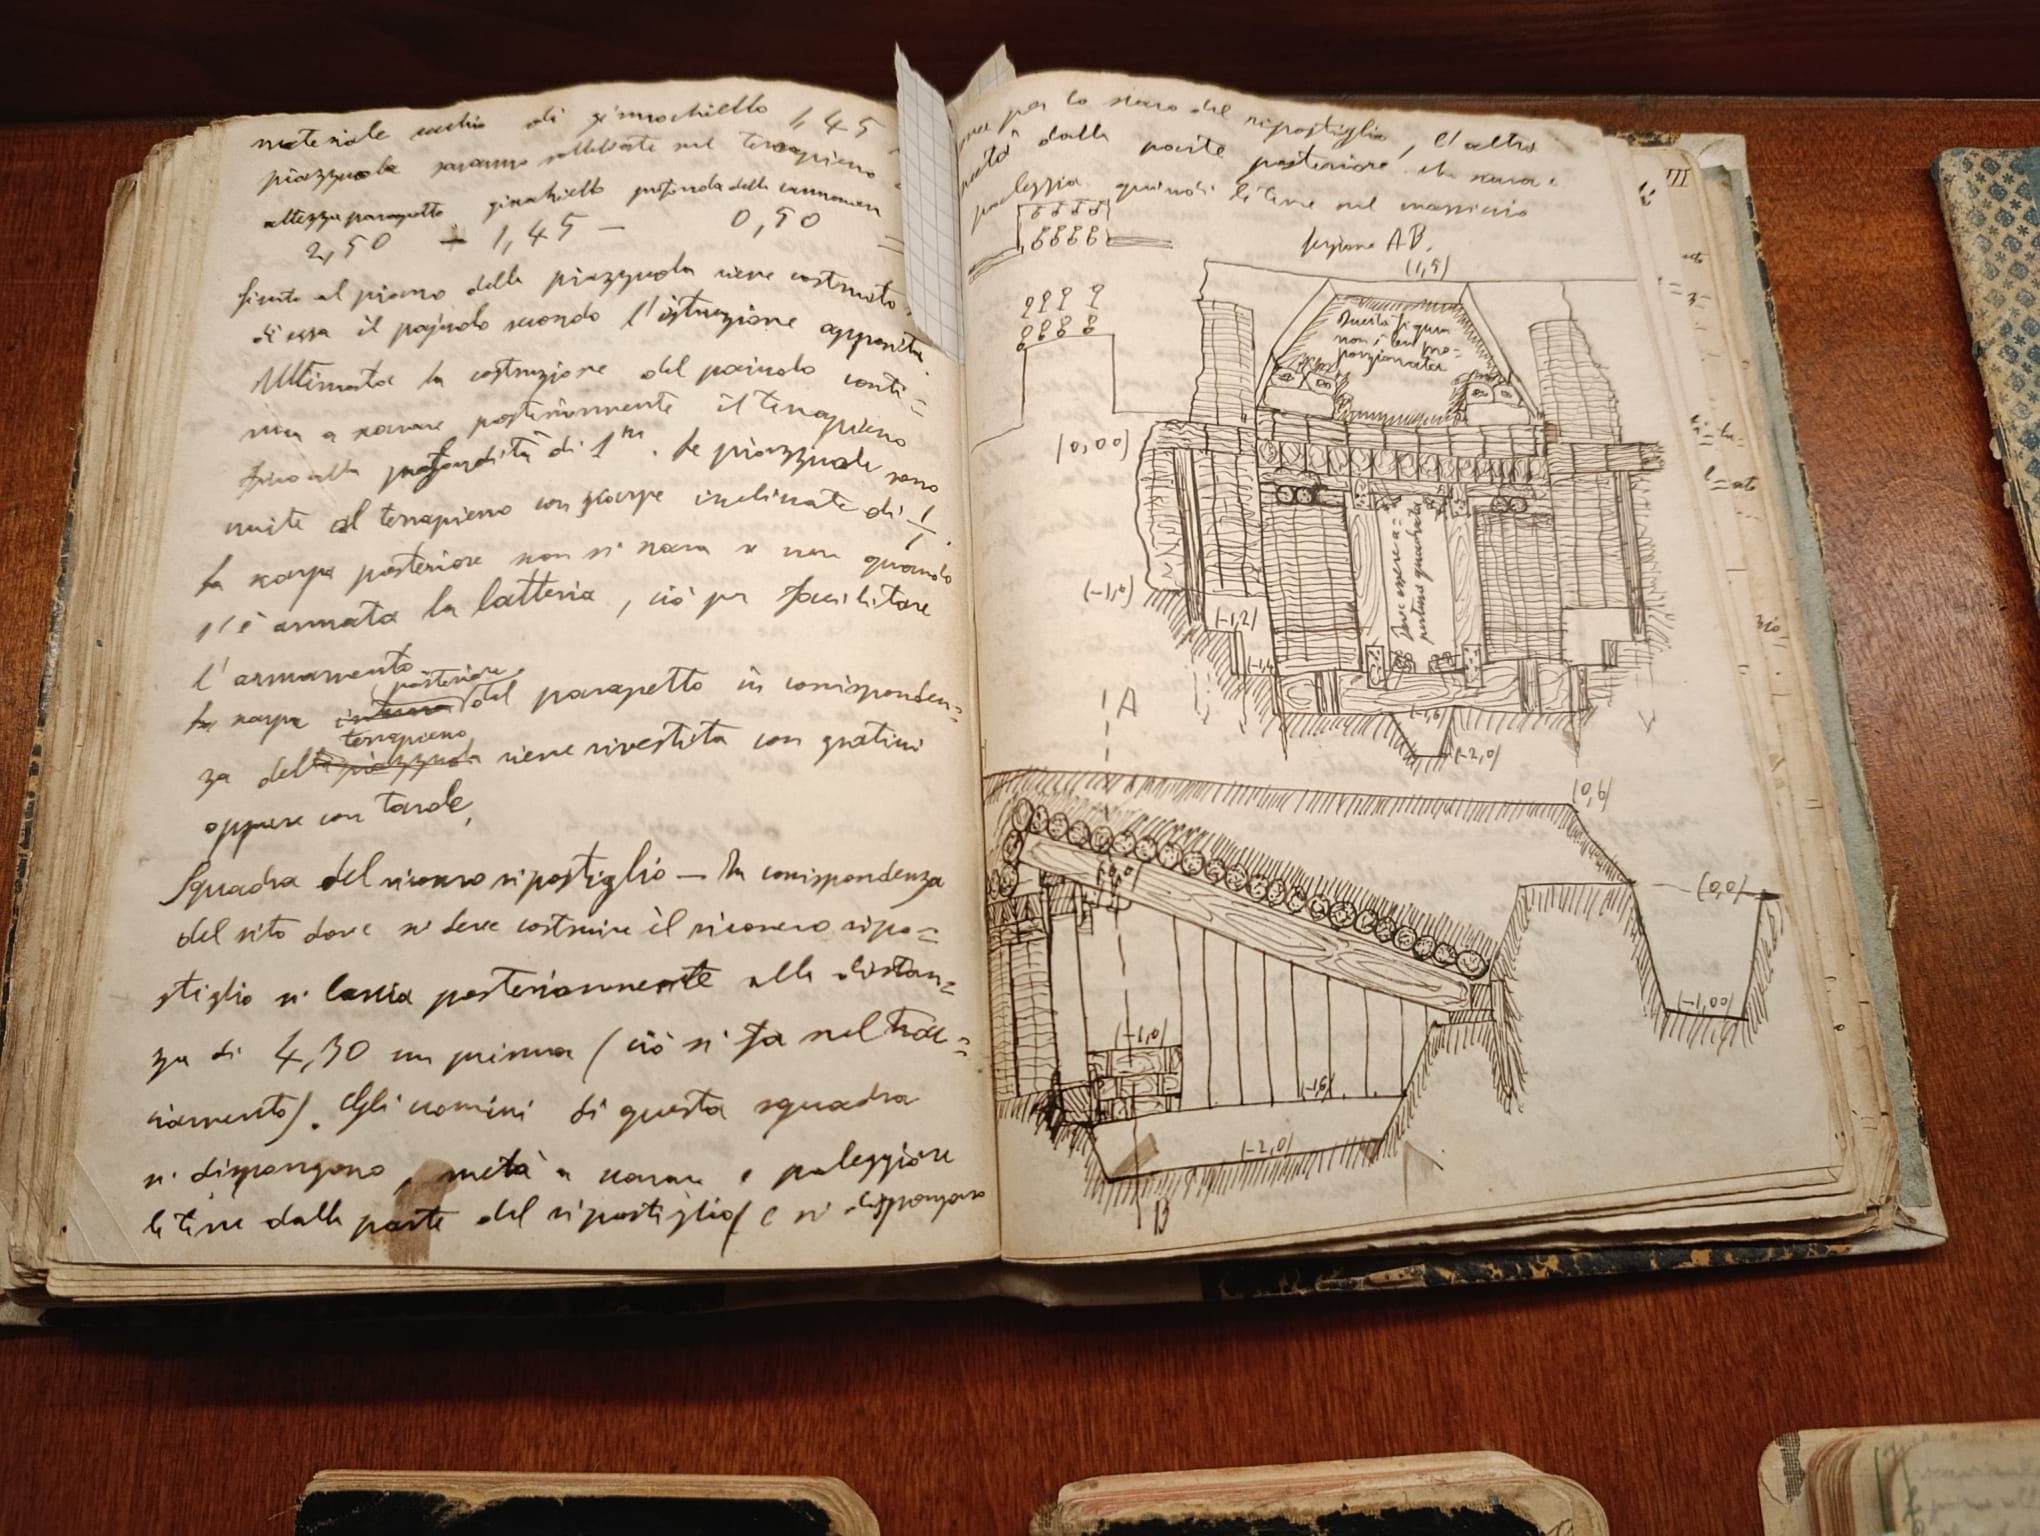 materiale di ginocchiello 1,45
piazzuola saranno nel terrapieno
altezza parapetto ginocchiello profondo della cannoniera
2,50 + 1,45 — 0,50
finito al piano della piazzuola viene costruito
di essa il pajuolo secondo l'istruzione apposita.
Ultimata la costruzione del paiuolo conti=
nua a scavare posteriormente il terrapieno
fino alla profondità di 1m. Le piazzuole sono
unite al terrapieno con scarpe inclinate di 1/1.
La scarpa posteriore non si scava se non quando
s'è armata la batteria, ciò per facilitare
l'armamento
posteriore
La scarpa interna del parapetto in corrisponden=
terrapieno
za della piazzuola viene rivestita con graticci
oppure con tavole.
Squadra del ricovero ripostiglio — In corrispondenza
del sito dove si deve costruire il ricovero ripo=
stiglio si lascia posteriormente alla distan=
za di 4,30 un prisma (ciò si fa nel trac=
ciamento). Gli uomini di questa squadra
si dispongono, metà a scavare e paleggiare
le terre dalla parte del ripostiglio (e si dispongono
per lo scavo del ripostiglio, l'altra
metà dalla parte posteriore che scava e
paleggia quindi le terre nel massiccio
sezione AB.
(1,5)
Questa figura
non è ben pro=
porzionata
(0,00)
Deve essere a=
pertura quadrata
(-1,0)
(-1,2)
(-1,6)
(-2,0)
A
(0,6)
(0,0)
(0,0)
(-1,00)
(-1,0)
(-1,6)
(-2,0)
B
III